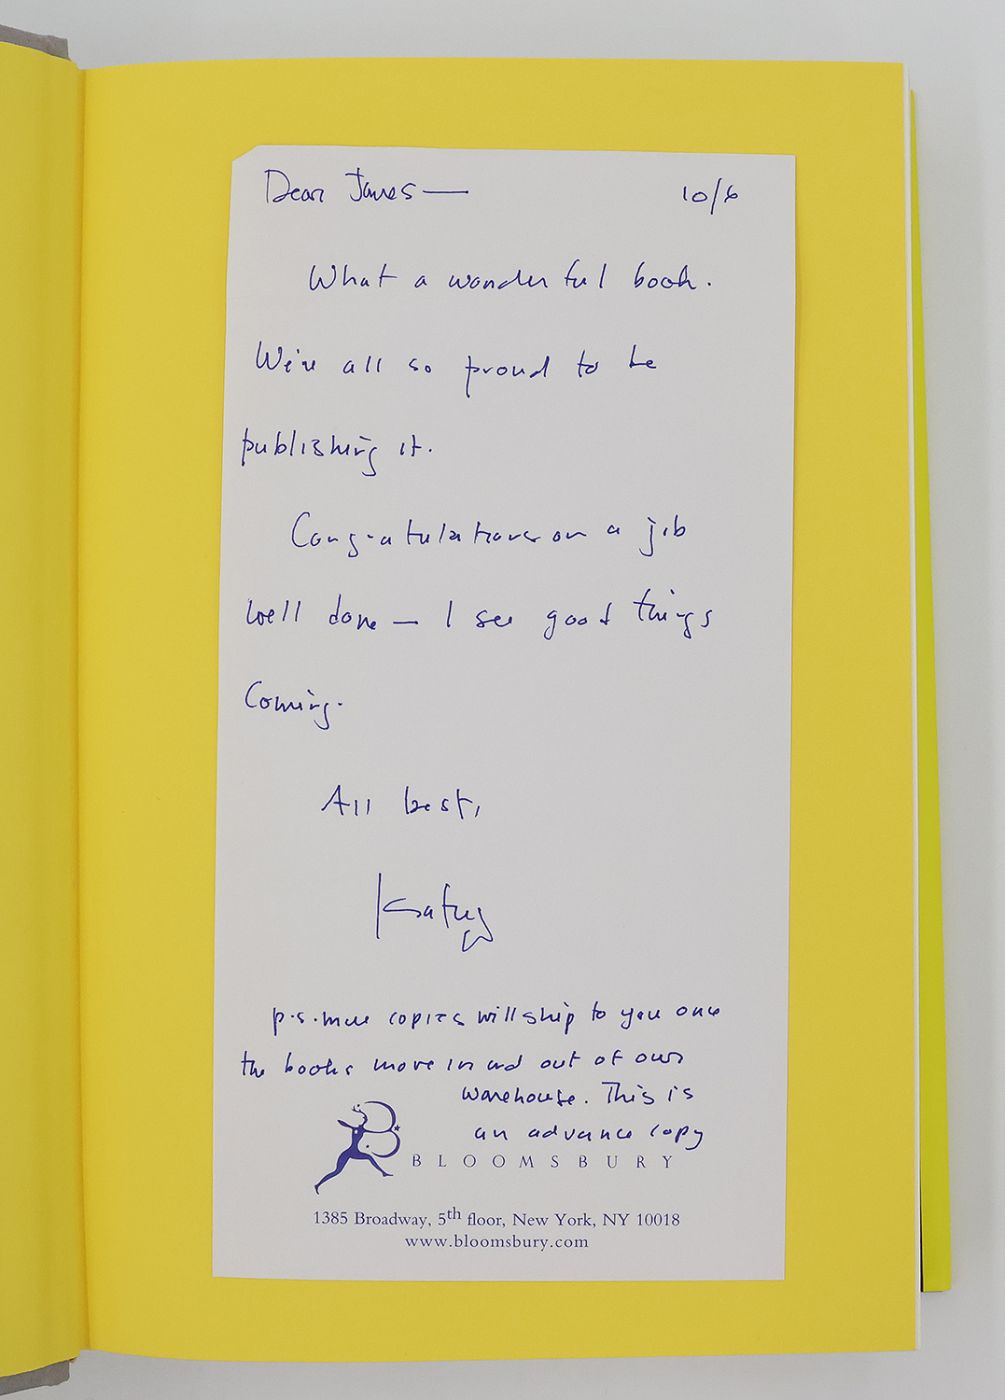 Dear James — 10/6
What a wonderful book.
We're all so proud to be
publishing it.
Congratulations on a job
well done — I see good things
coming.
All best,
Kathy
p.s. more copies will ship to you once
the books move in and out of our
warehouse. This is
an advance copy
B
BLOOMSBURY
1385 Broadway, 5th floor, New York, NY 10018
www.bloomsbury.com